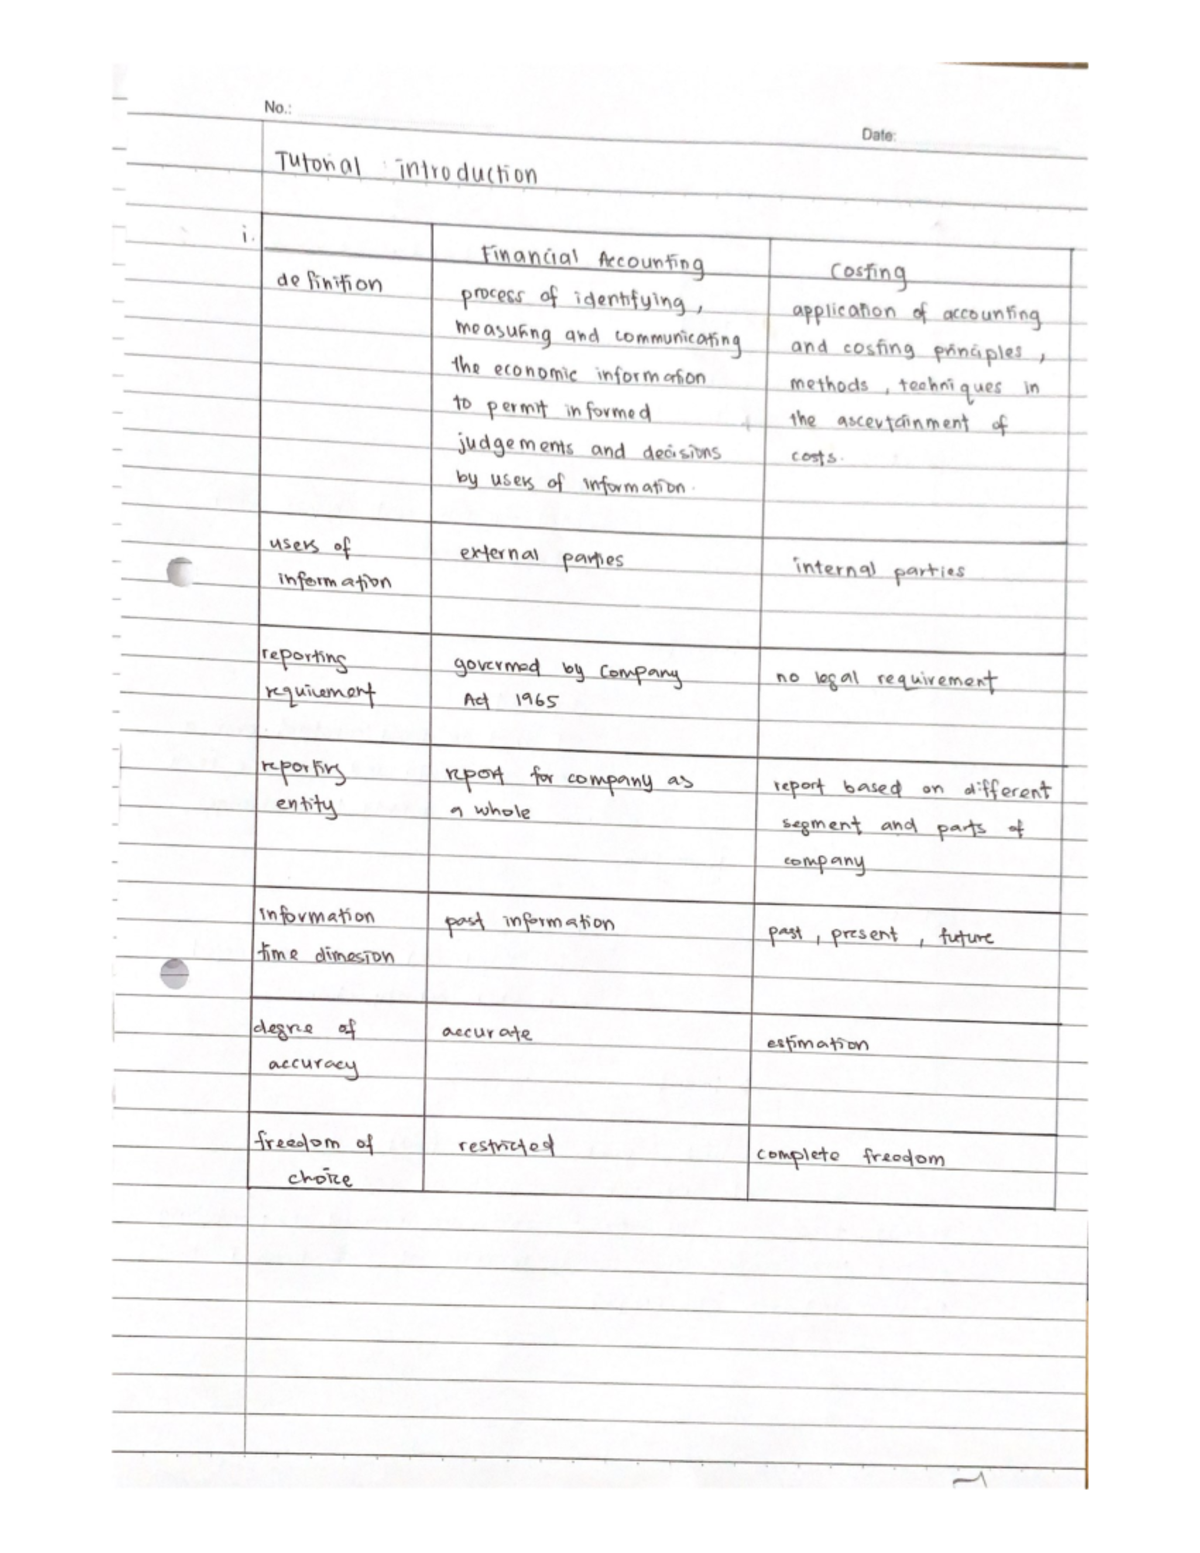 No.:
Date:
Tutorial : introduction
i.
Financial Accounting
Costing
definition
process of identifying,
measuring and communicating
the economic information
to permit informed
judgements and decisions
by users of information.
application of accounting
and costing principles,
methods, techniques in
the ascertainment of
costs.
users of
information
external parties
internal parties
reporting
requirement
governed by Company
Act 1965
no legal requirement
reporting
entity
report for company as
a whole
report based on different
segment and parts of
company
information
time dimesion
past information
past, present, future
degree of
accuracy
accurate
estimation
freedom of
choice
restricted
complete freedom